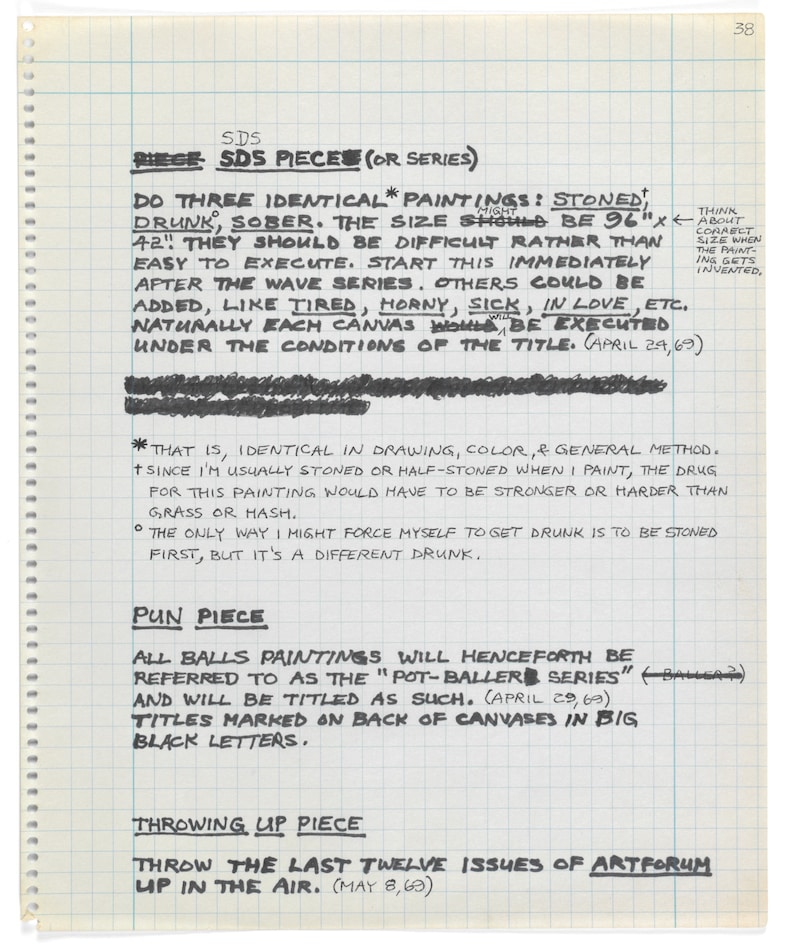 38
SDS
PIECE SDS PIECE (OR SERIES)
DO THREE IDENTICAL* PAINTINGS: STONED†,
DRUNK°, SOBER. THE SIZE SHOULD MIGHT BE 96" X ← THINK ABOUT CORRECT SIZE WHEN THE PAINT-ING GETS INVENTED.
42" THEY SHOULD BE DIFFICULT RATHER THAN
EASY TO EXECUTE. START THIS IMMEDIATELY
AFTER THE WAVE SERIES. OTHERS COULD BE
ADDED, LIKE TIRED, HORNY, SICK, IN LOVE, ETC.
NATURALLY EACH CANVAS WOULD WILL BE EXECUTED
UNDER THE CONDITIONS OF THE TITLE. (APRIL 24, 69)
* THAT IS, IDENTICAL IN DRAWING, COLOR, & GENERAL METHOD.
† SINCE I'M USUALLY STONED OR HALF-STONED WHEN I PAINT, THE DRUG
FOR THIS PAINTING WOULD HAVE TO BE STRONGER OR HARDER THAN
GRASS OR HASH.
° THE ONLY WAY I MIGHT FORCE MYSELF TO GET DRUNK IS TO BE STONED
FIRST, BUT IT'S A DIFFERENT DRUNK.
PUN PIECE
ALL BALLS PAINTINGS WILL HENCEFORTH BE
REFERRED TO AS THE "POT-BALLER SERIES" (-BALLER?)
AND WILL BE TITLED AS SUCH. (APRIL 29, 69)
TITLES MARKED ON BACK OF CANVASES IN BIG
BLACK LETTERS.
THROWING UP PIECE
THROW THE LAST TWELVE ISSUES OF ARTFORUM
UP IN THE AIR. (MAY 8, 69)